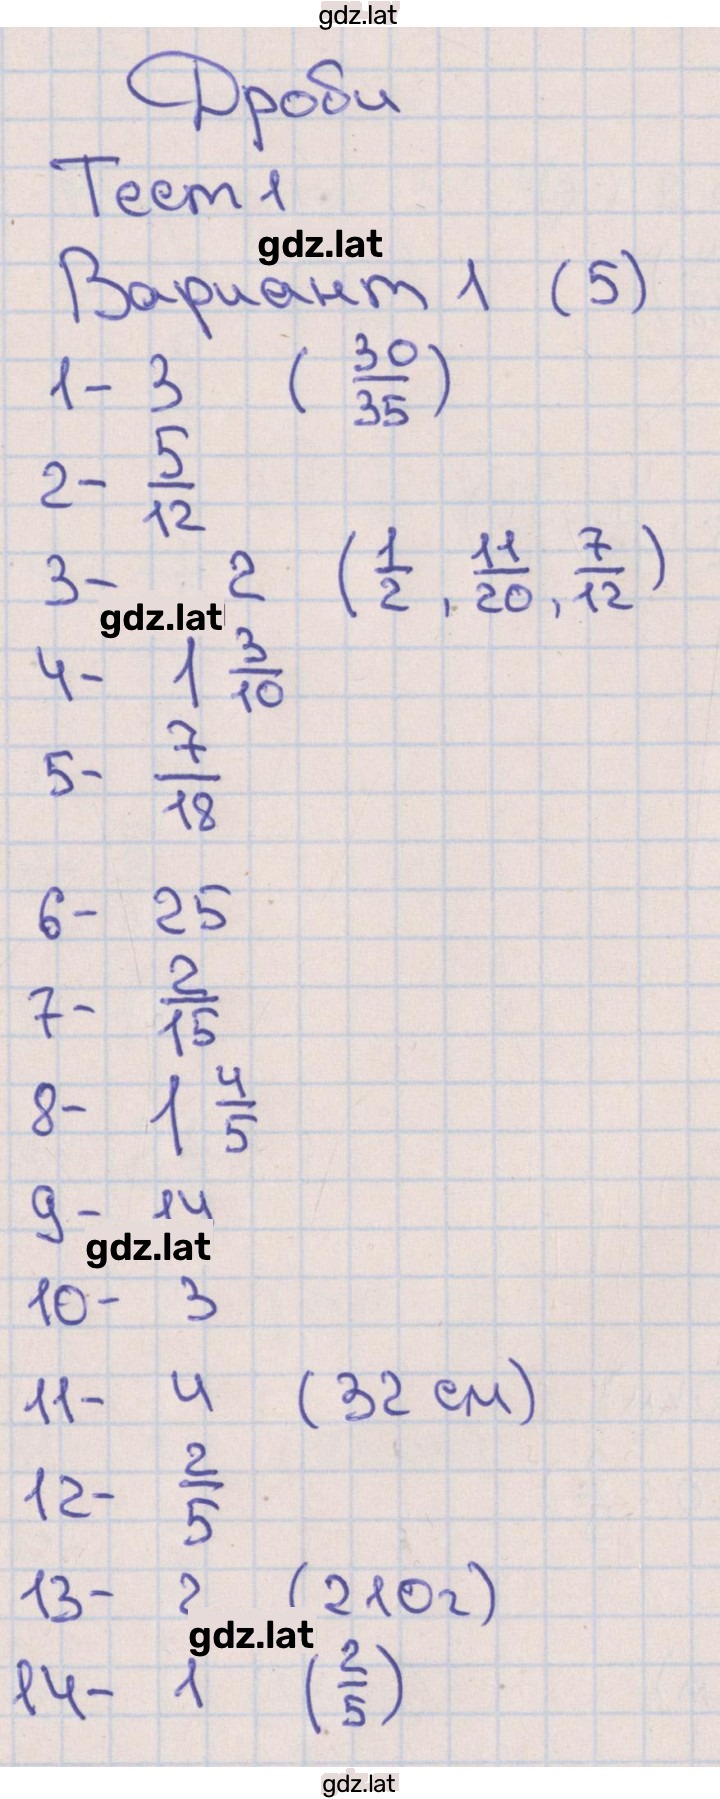 gdz.lat
Дроби
Тест 1
gdz.lat
Вариант 1 (5)
1- 3 (30/35)
2- 5/12
3- 2 (1/2, 11/20, 7/12)
gdz.lat
4- 1 3/10
5- 7/18
6- 25
7- 2/15
8- 1 4/5
9- 14
gdz.lat
10- 3
11- 4 (32 см)
12- 2/5
13- 2 (210г)
gdz.lat
14- 1 (2/5)
gdz.lat